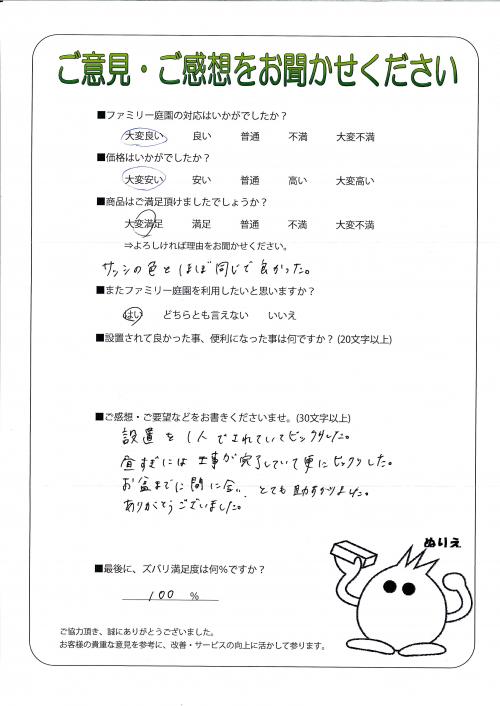 ご意見・ご感想をお聞かせください
■ファミリー庭園の対応はいかがでしたか？
大変良い 良い 普通 不満 大変不満
■価格はいかがでしたか？
大変安い 安い 普通 高い 大変高い
■商品はご満足頂けましたでしょうか？
大変満足 満足 普通 不満 大変不満
⇒よろしければ理由をお聞かせください。
サッシの色とほぼ同じで良かった。
■またファミリー庭園を利用したいと思いますか？
はい どちらとも言えない いいえ
■設置されて良かった事、便利になった事は何ですか？(20文字以上)
■ご感想・ご要望などをお書きくださいませ。(30文字以上)
設置を1人でされていてビックリした。
昼すぎには工事が完了していて更にビックリした。
お盆までに間に合い、とても助かりました。
ありがとうございました。
ぬりえ
■最後に、ズバリ満足度は何％ですか？
100 %
ご協力頂き、誠にありがとうございました。
お客様の貴重な意見を参考に、改善・サービスの向上に活かして参ります。